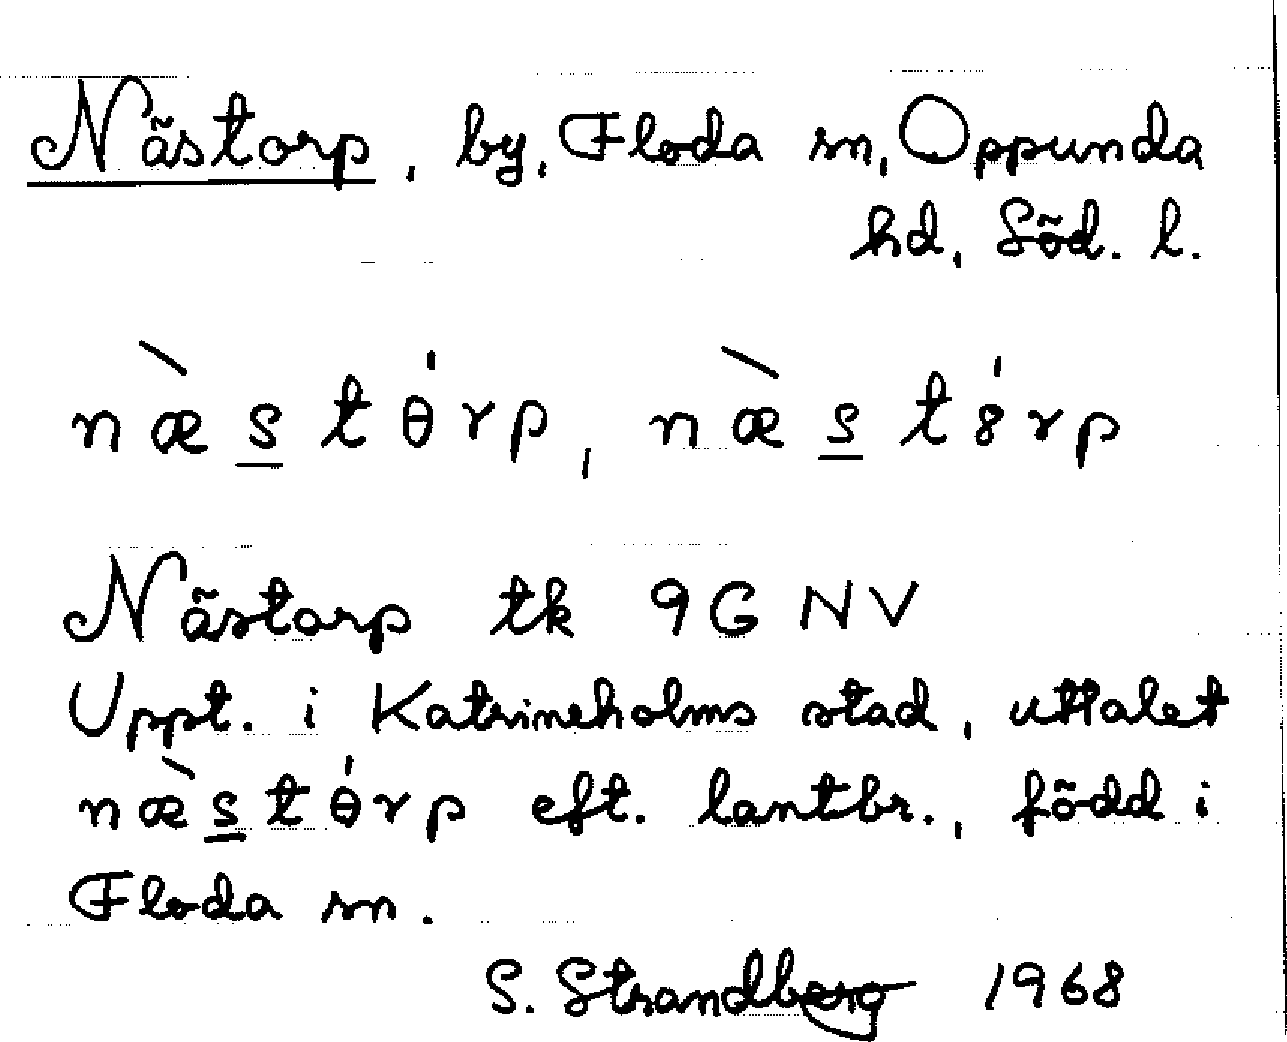 Nästorp, by, Floda sn, Oppunda
hd, Söd. l.
næ̀s̲tθ́rp, næ̀s̲t8́rp
Nästorp tk 9G NV
Uppt. i Katrineholms stad, uttalet
næ̀s̲tθ́rp eft. lantbr., född i
Floda sn.
S. Strandberg 1968